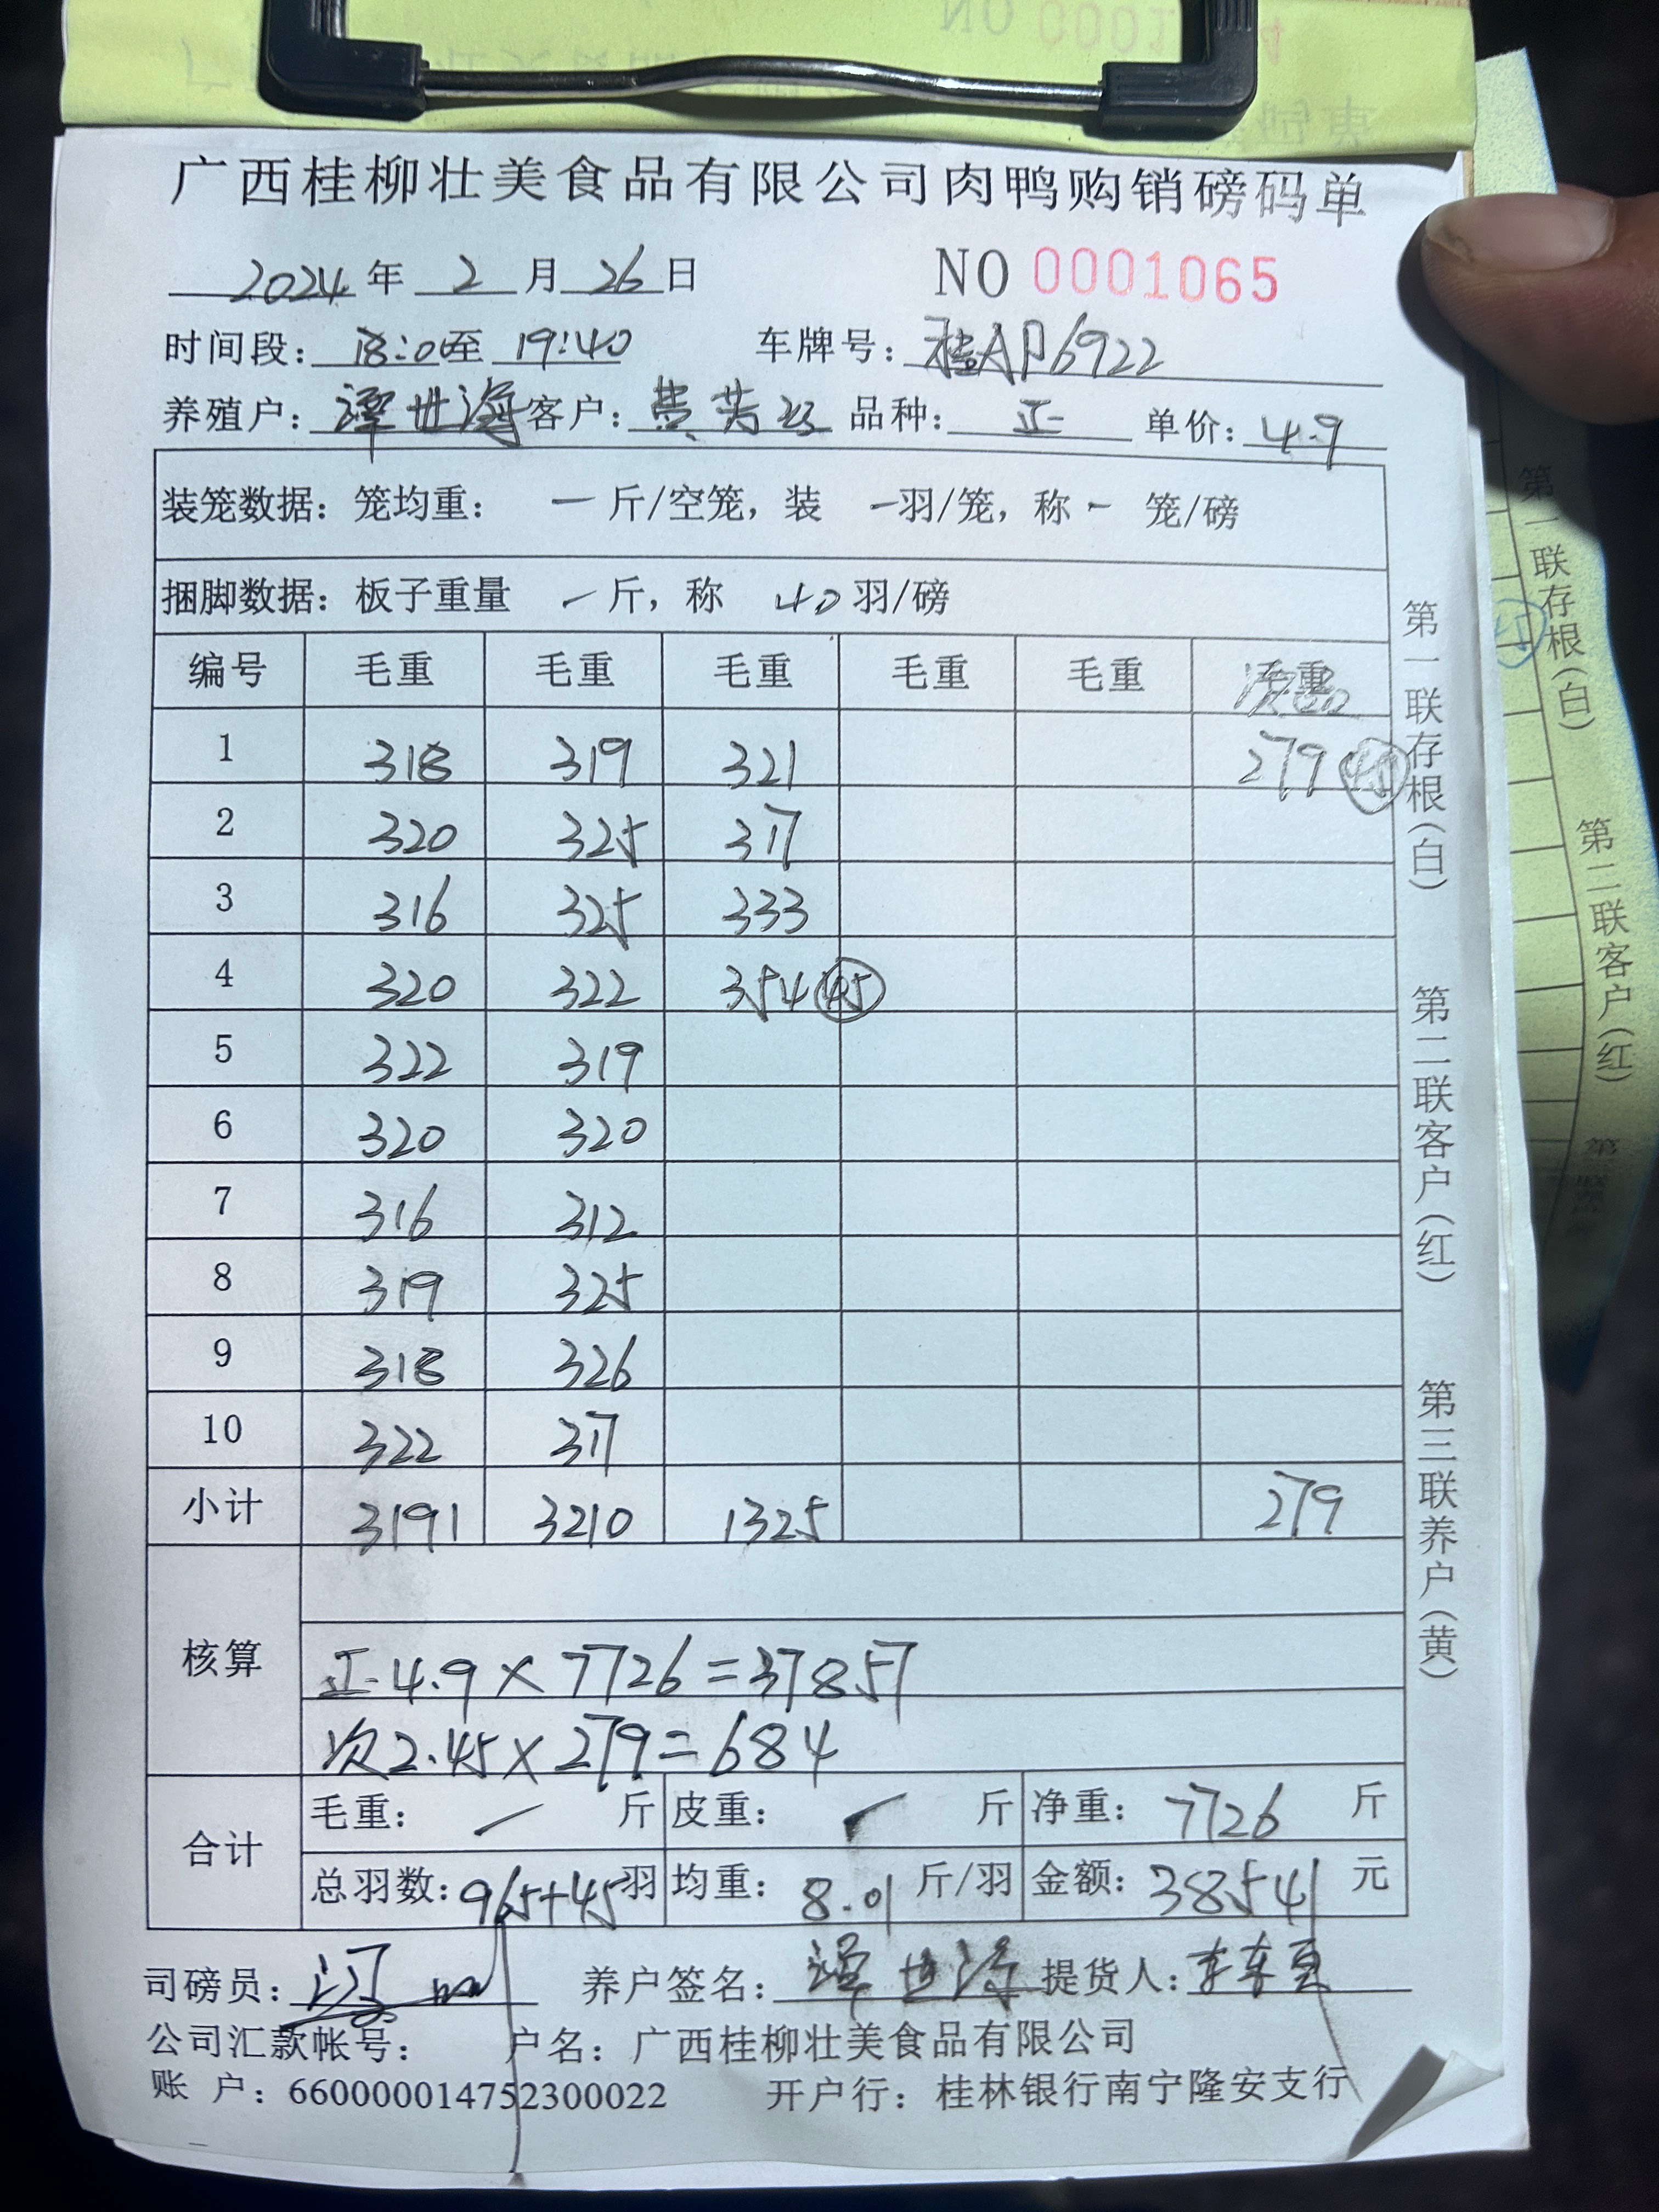 广西桂柳壮美食品有限公司肉鸭购销磅码单
2024年 2 月 26 日 NO 0001065
时间段: 18:00至 19:40 车牌号: 桂AP6922
养殖户: 谭世海 客户: 黄芳 品种: 正 单价: 4.9
装笼数据: 笼均重: 一 斤/空笼, 装 一羽/笼, 称 - 笼/磅
捆脚数据: 板子重量 - 斤, 称 40 羽/磅
编号 毛重 毛重 毛重 毛重 毛重 次品
1 318 319 321 279 45
2 320 325 317
3 316 325 333
4 320 322 354 45
5 322 319
6 320 320
7 316 312
8 319 325
9 318 326
10 322 317
小计 3191 3210 1325 279
核算
正 4.9 × 7726 = 37857
次 2.45 × 279 = 684
合计
毛重: — 斤 皮重: - 斤 净重: 7726 斤
总羽数: 965+45羽 均重: 8.01 斤/羽 金额: 38541 元
司磅员: 养户签名: 谭世海 提货人:
公司汇款帐号: 户名: 广西桂柳壮美食品有限公司
账 户: 660000014752300022 开户行: 桂林银行南宁隆安支行
第一联存根(白)
第二联客户(红)
第三联养户(黄)
第一联存根(白)
第二联客户(红)